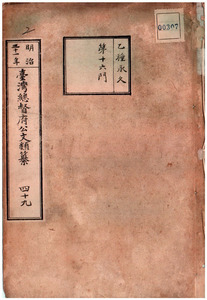 00307
乙種永久
第十六門
明治
三十一年
臺灣總督府公文類纂
四十九